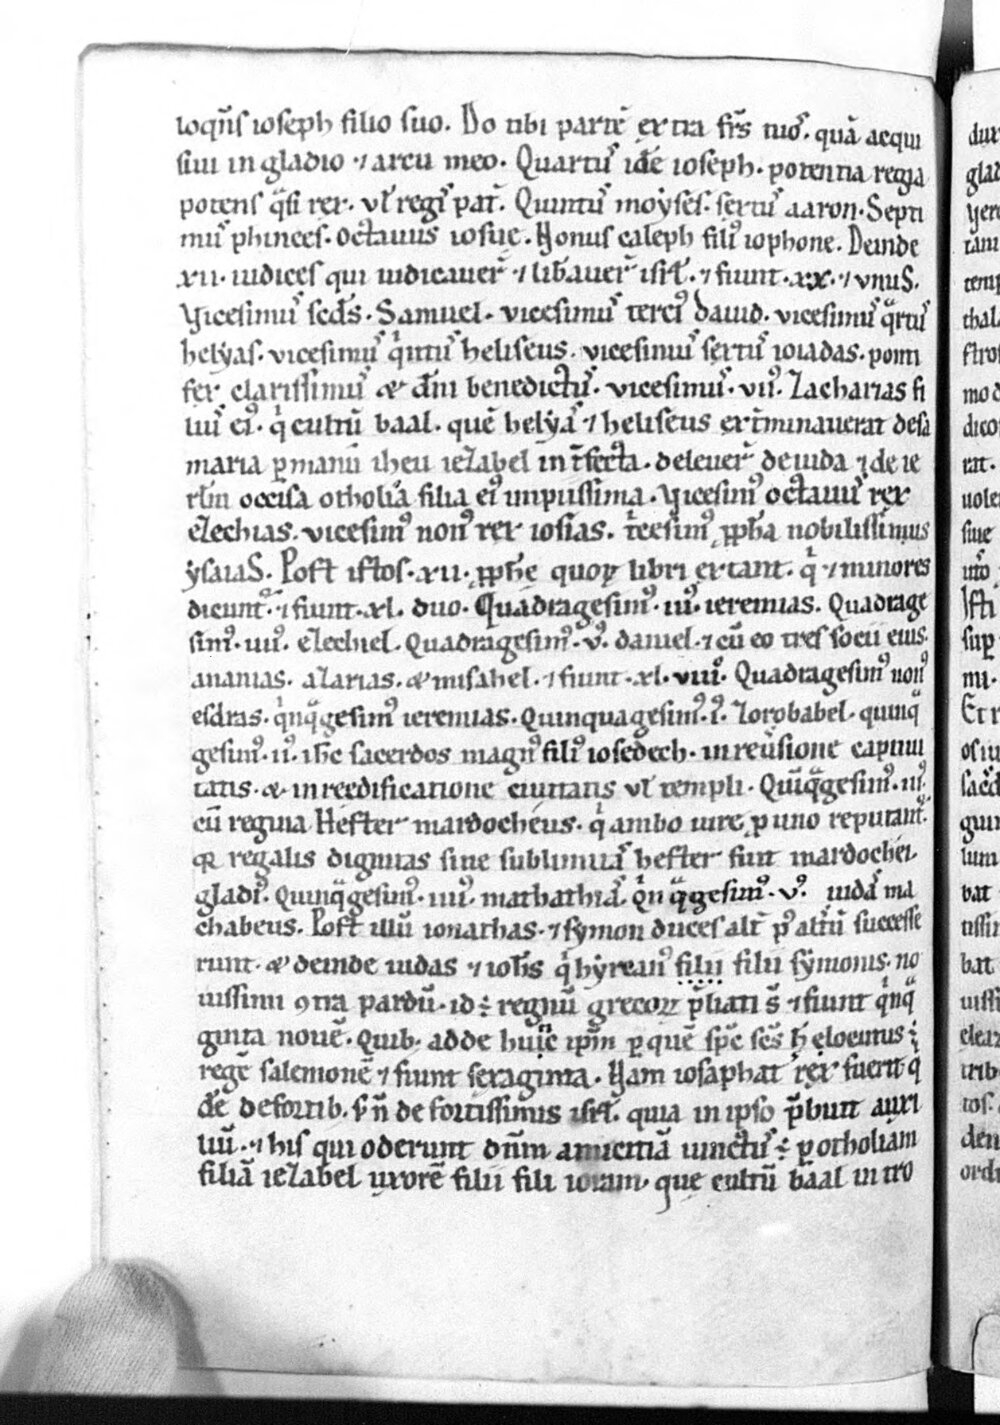 ioqñs ioseph filio suo. Do tibi partē extra fr̄s tuoſ. quā acqui
siui in gladio ⁊ arcu meo. Quartuſ idē ioseph. potentia regia
potens q̄si rex. ul̄ regiſ pat̄. Quintuſ moẏses. sextuſ aaron. Septi
muſ phinees. octauus iosue. Nonus caleph filiꝰ iophone. Deinde
xii. iudices qui iudicauer̄ ⁊ lib̄auer̄ isrl̄. ⁊ fiunt. xx. ⁊ unuS.
Vicesimuſ scd̄s. Samuel. vicesimuſ terciꝰ dauid. vicesimuſ qͣrtuſ
helẏas. vicesimuſ qͥntuſ heliseus. vicesimuſ sextuſ ioiadas. ponti
fex clarissimuſ & dn̄i benedictuſ. vicesimuſ. viiꝰ. Zacharias fi
liuſ eiꝰ. qͥ cultū baal. quē helẏaſ ⁊ heliseus ext̄minauerat de sa
maria ꝑ manū iheu iezabel int̄fecta. deleuer̄ de iuda ⁊ de ie
rl̄m occisa otholia filia eiꝰ impiissima. Vicesimꝰ octauuſ rex
ezechias. vicesimꝰ nonꝰ rex iosias. tͥcesimꝰ ꝓph̄a nobilissimus
ẏsaiaS. Post istos. xii. ꝓph̄e quoꝝ libri extant. qͥ ⁊ minores
dicunt᷑. ⁊ fiunt. xl. duo. Quadragesimꝰ. iiiꝰ. ieremias. Quadrage
simꝰ. iiiiꝰ. ezechiel. Quadragesimꝰ. vꝰ. daniel. ⁊ cū eo tres socii eius.
ananias. azarias. & misahel. ⁊ fiunt. xl. viiiꝰ. Quadragesimꝰ nonꝰ
esdras. qͥnqͣgesimꝰ ieremias. Quinquagesimꝰ. iꝰ. Zorobabel. quinqͣ
gesimꝰ. iiꝰ. ih̄c sacerdos magnꝰ filiꝰ iosedech. in reūsione captiui
tatis. & in reedificatione ciuitatis ul̄ templi. Quīqͣgesimꝰ. iiiꝰ.
cū regina Hester mardocheus. qͥ ambo iure ꝑ uno reputant᷑.
regalis dignitas siue sublimitaſ hester fuit mardochei
gladiꝰ. Quinqͣgesimꝰ. iiiiꝰ. mathathiaſ. Qͥnqͣgesimꝰ. vꝰ. iudaſ ma
chabeus. Post illū ionathas. ⁊ sẏmon duces alt̄ pꝰ alt̄ū successe
runt. & deinde iudas ⁊ ioh̄s qͥ hẏrcanꝰ filii filii sẏmonis. no
uissimi ꝯtra pardū. id ÷ regnū grecoꝝ p̄liati s̄ ⁊ fiunt qͥnqͣ
ginta nouē. Quib. adde huic ipm̄ ꝑ quē spc̄ sc̄s h̄ eloquutus ÷
regē salemonē ⁊ fiunt sexaginta. Nam iosaphat rex fuerit qͥ
dē de fortib. s; n̄ de fortissimis isrl̄. quia in ipso p̄buit auxi
liū. ⁊ his qui oderunt dn̄m amicitiā iunctuſ ÷ ꝑ otholiam
filiā iezabel uxorē filii sui ioram. que cultū baal intro